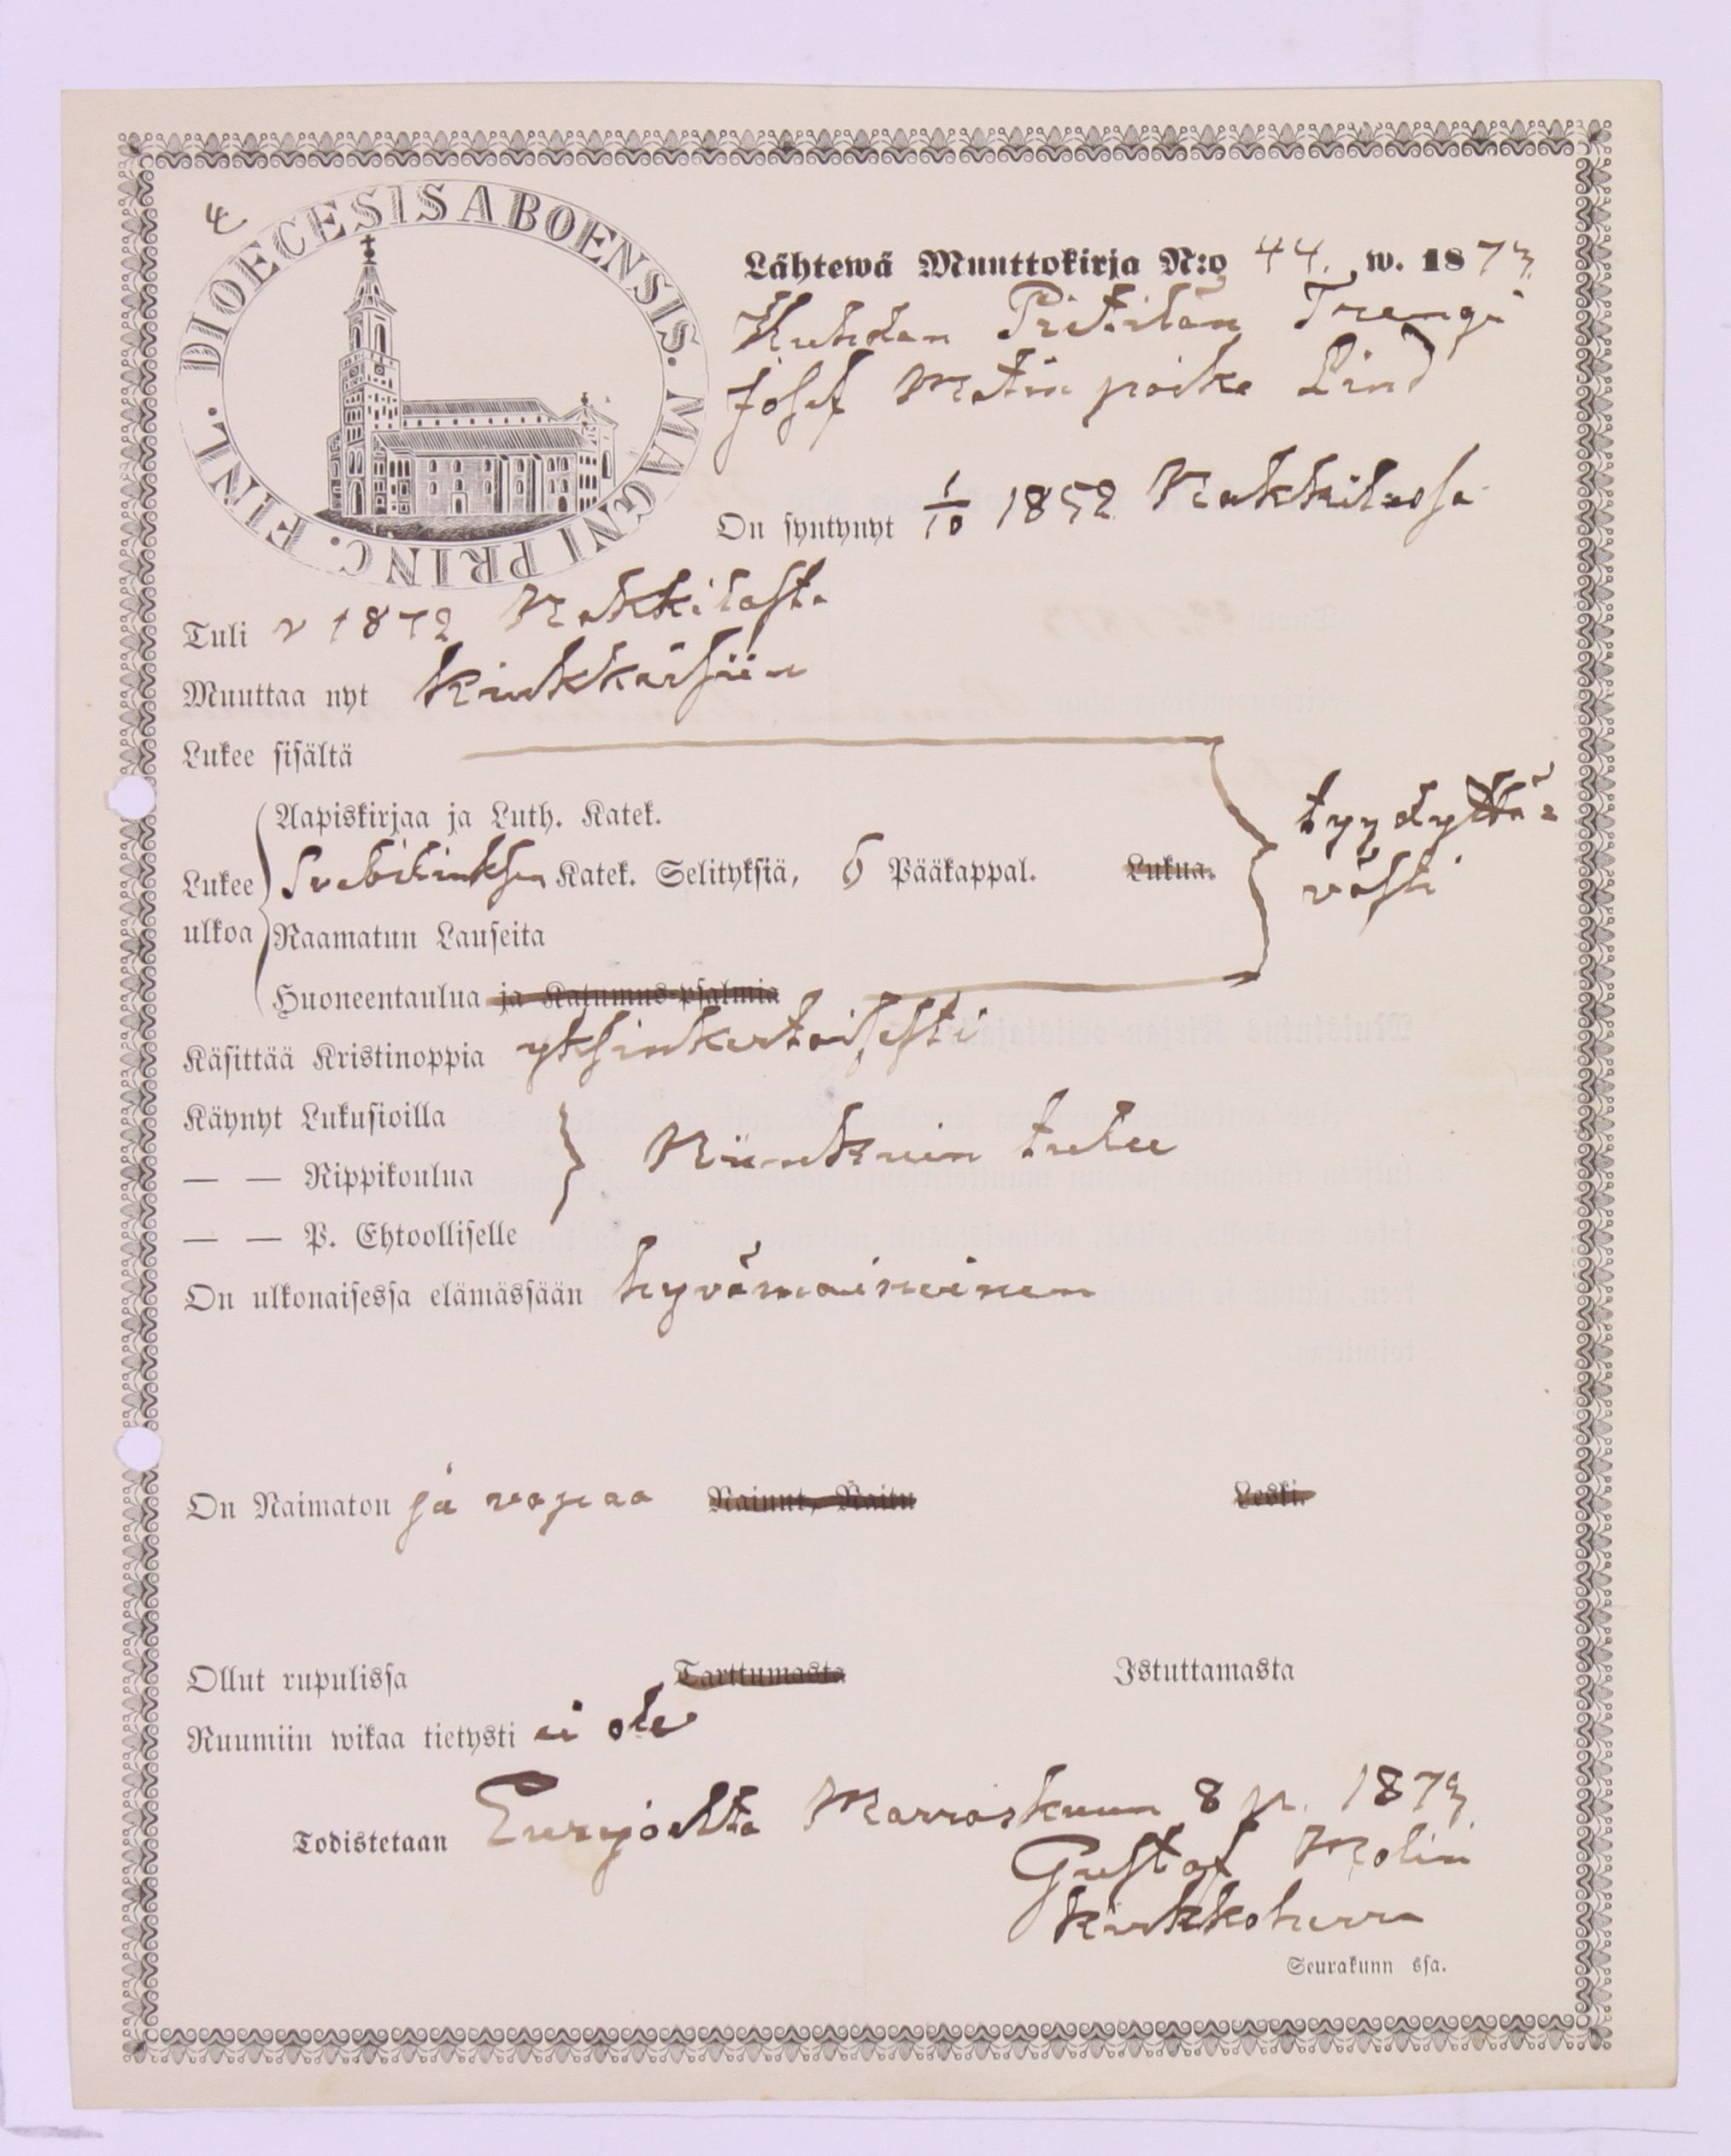 4
DIOECESIS ABOENSIS. MAGNI PRINC. FINL.
Lähtewä Muuttokirja N:o 44. w. 1873
Kuhdan Trengi
Josef Matin poika Lind
On syntynyt 1/10 1852 Nakkilassa
Tuli v 1872 Nakkilasta
Muuttaa nyt Kiukkaisiin
Lukee sisältä
Aapiskirjaa ja Luth. Katek.
Lukee ulkoa Svebiliuksen Katek. Selityksiä, 6 Pääkappal. Lukua.
Raamatun Lauseita
Huoneentaulua ja Katumus-psalmia
tyydyttä=
västi
Käsittää Kristinoppia yksinkertaisesti
Käynyt Lukusioilla
— — Rippikoulua
Niinkuin tulee
— — P. Ehtoolliselle
On ulkonaisessa elämässään hyvämaineinen
On Naimaton ja vapaa Nainut, Naitu Leski.
Ollut rupulissa Tarttumasta Istuttamasta
Ruumiin wikaa tietysti ei ole
Todistetaan Eurajoelta Marraskuun 8 p. 1873
Gustaf Molin
Kirkkoherra
Seurakunn ssa.